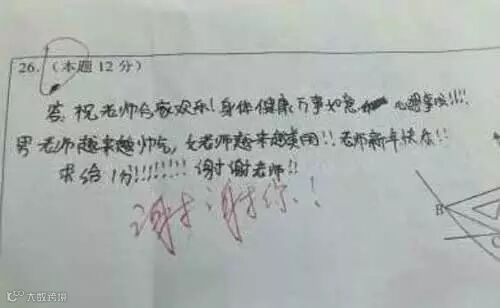 26.（本题 12 分）
答:祝老师合家欢乐!身体健康 万事如意 心想事成!!!!
男老师越来越帅气,女老师越来越美丽!!老师新年快乐!!
求给1分!!!!!!!谢谢老师!!
谢谢你!!
B
大数跨境